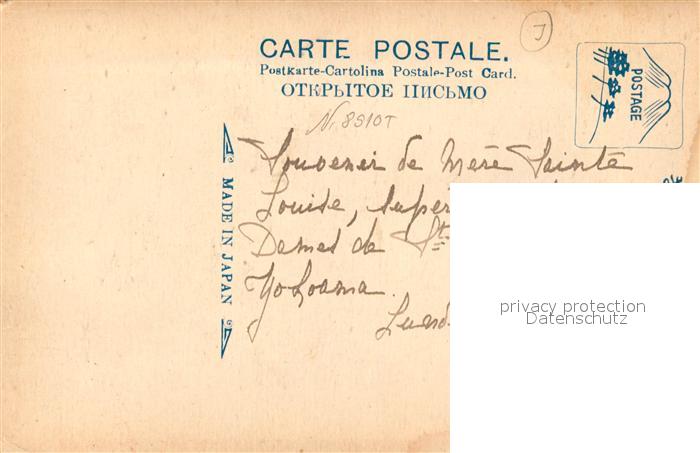 J
CARTE POSTALE.
Postkarte-Cartolina Postale-Post Card.
ОТКРЫТОЕ ПИСЬМО
POSTAGE
Nr 8910T
MADE IN JAPAN
Souvenir de Mère Sainte
Louise, super
Dames de St
Yokoama.
privacy protection
Datenschutz